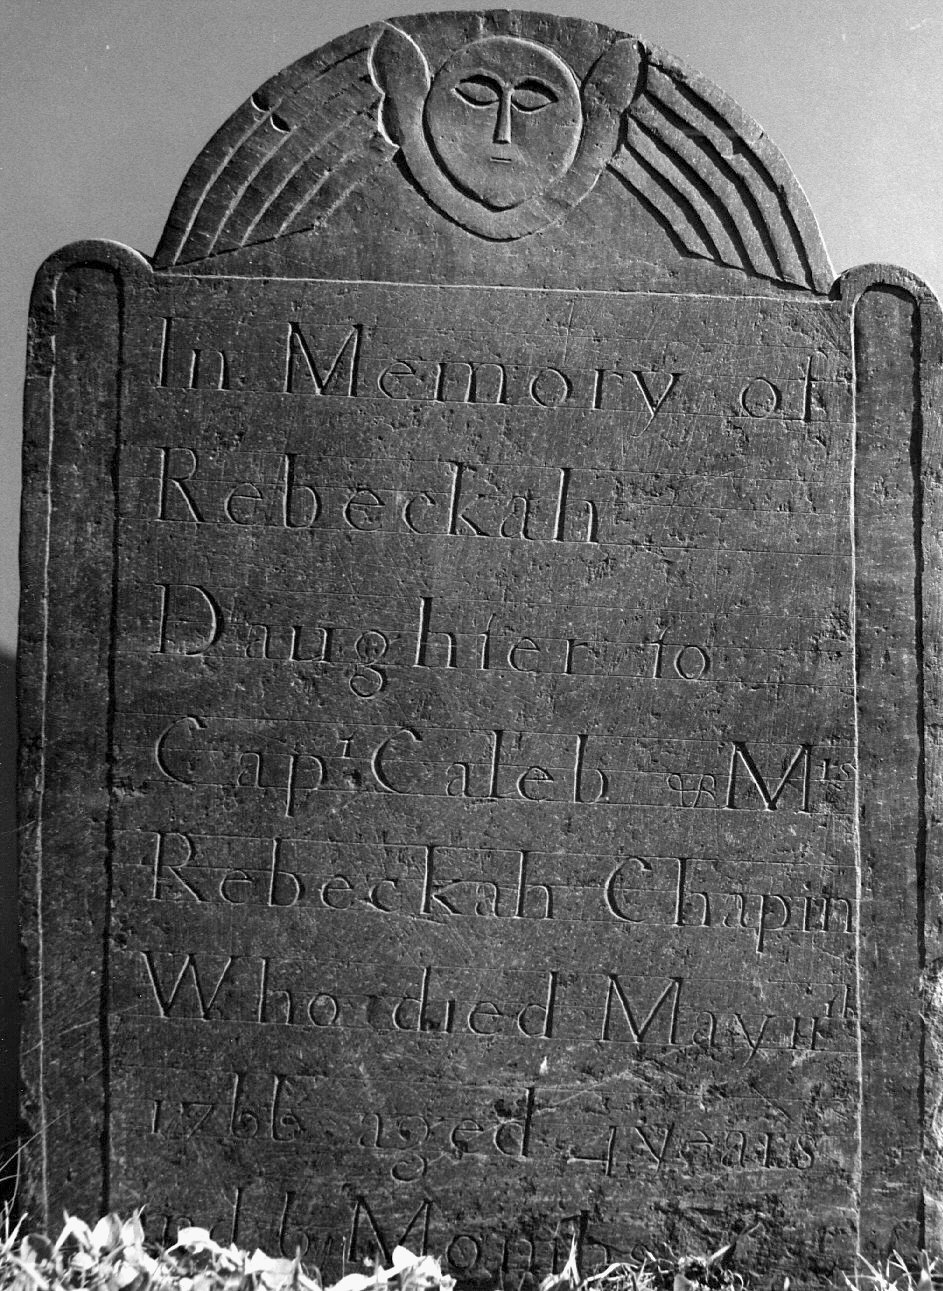 In Memory of
Rebeckah
Daughter to
Capt Caleb & Mrs
Rebeckah Chapin
Who died May 11th
1766 aged 4 years
and 6 Months